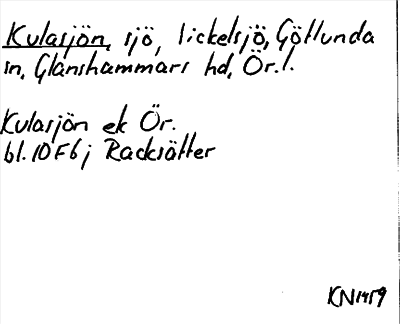 Kulasjön, sjö, lickelsjö, Götlunda
sn, Glanshammars hd, Ör.l.
Kulasjön ek Ör.
bl.10F6j Racksätter
KN1959